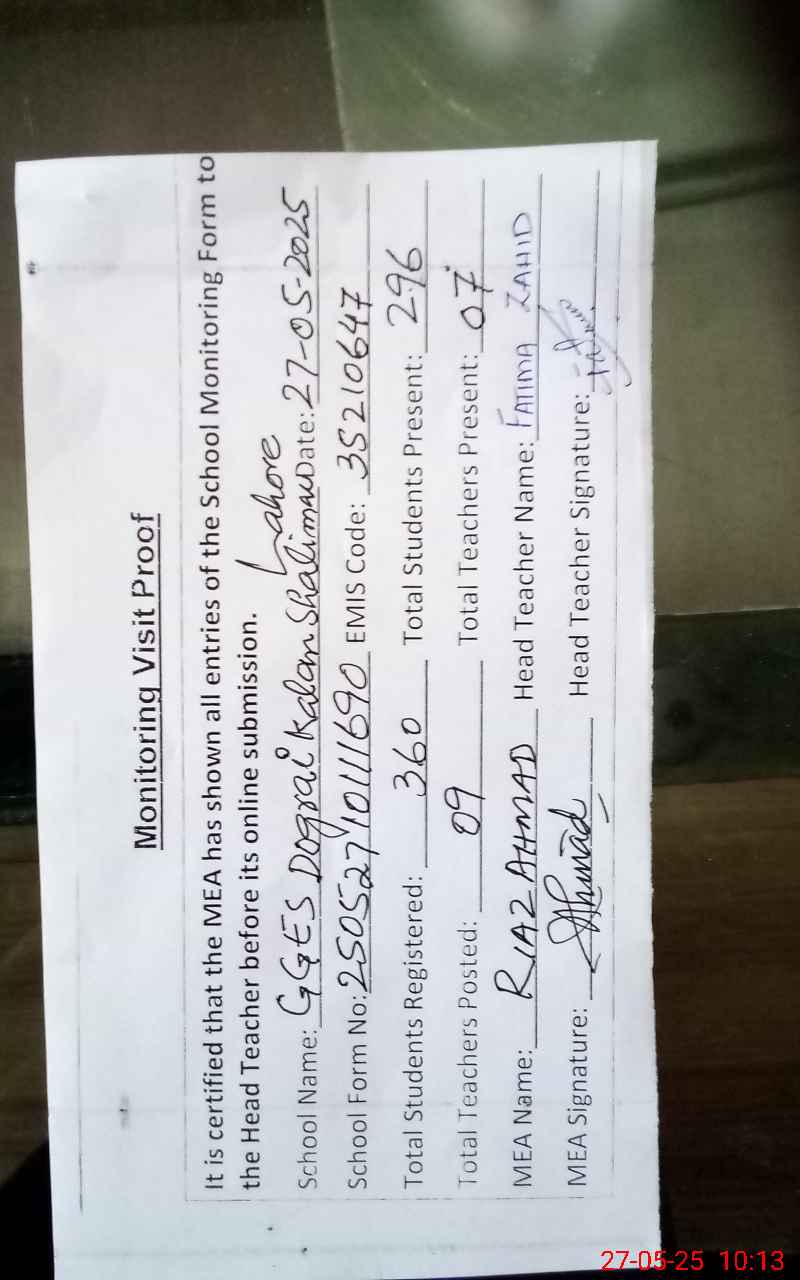 Monitoring Visit Proof
It is certified that the MEA has shown all entries of the School Monitoring Form to
the Head Teacher before its online submission.
School Name: GGES Dograi Kalan Shalimar Lahore Date: 27-05-2025
School Form No: 250527101111690 EMIS Code: 35210647
Total Students Registered: 360 Total Students Present: 296
Total Teachers Posted: 09 Total Teachers Present: 07
MEA Name: RIAZ AHMAD Head Teacher Name: FATIMA ZAHID
MEA Signature: Ahmad Head Teacher Signature:
27-05-25 10:13